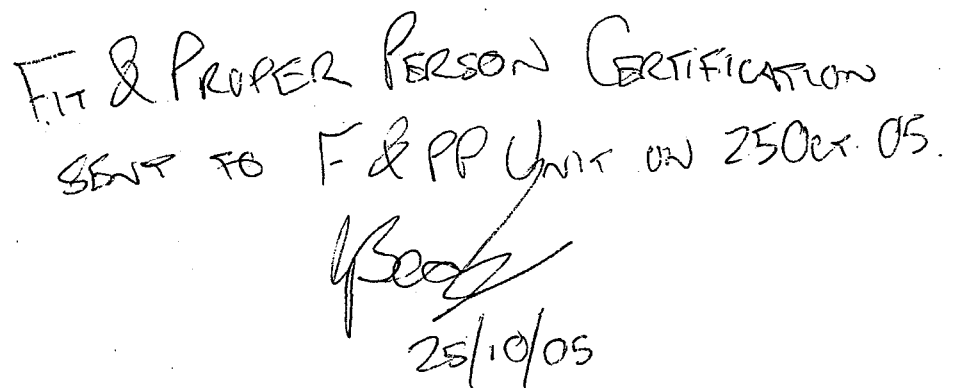 FIT & PROPER PERSON CERTIFICATION
SENT TO F & PP UNIT ON 25 OCT. 05.
25/10/05